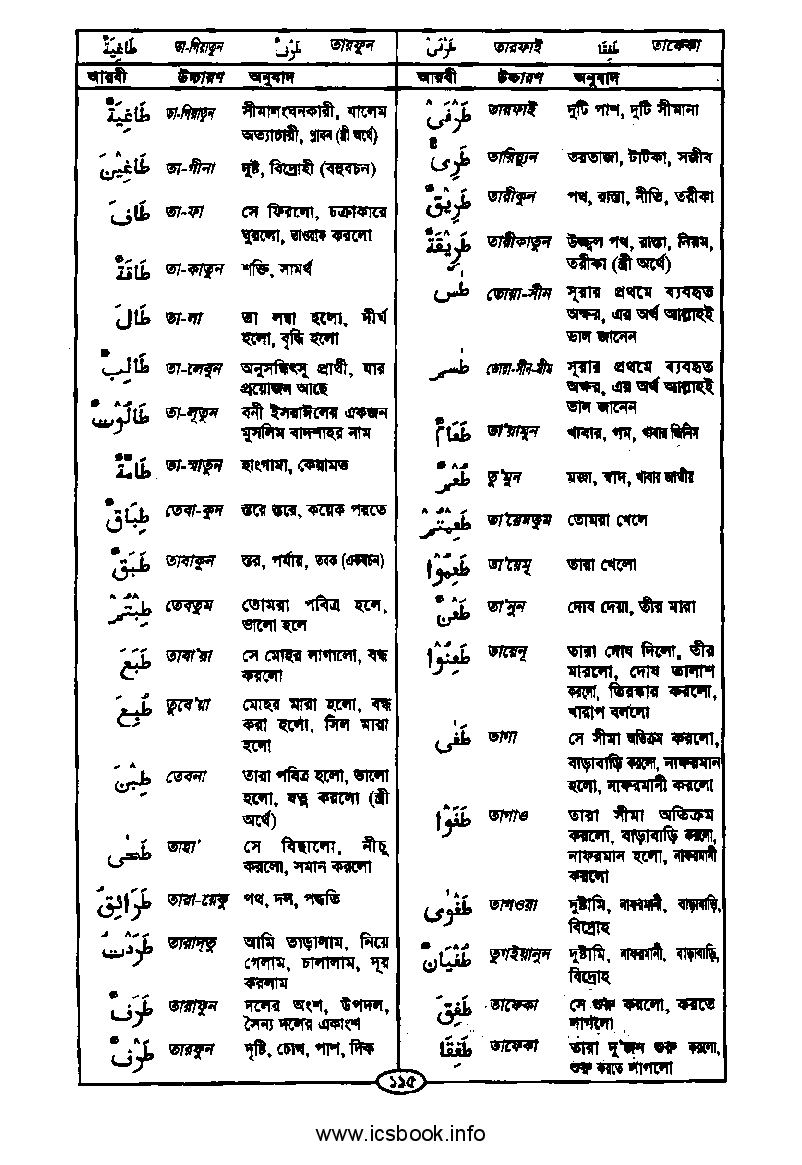 طَاغِيَةٌ তা-গিয়াতুন طَرْفٌ তারফুন
طَرَفَىْ তারফাই طَفِقَا তাফেকা
আরবী উচ্চারণ অনুবাদ
আরবী উচ্চারণ অনুবাদ
طَاغِيَةٌ তা-গিয়াতুন সীমালংঘনকারী, যালেম
অত্যাচারী, প্লাবন (স্ত্রী অর্থে)
طَاغِيْنَ তা-গীনা দুষ্ট, বিদ্রোহী (বহুবচন)
طَافَ তা-ফা সে ফিরলো, চক্রাকারে
ঘুরলো, তাওয়াফ করলো
طَاقَةٌ তা-কাতুন শক্তি, সামর্থ
طَالَ তা-লা তা লম্বা হলো, দীর্ঘ
হলো, বৃদ্ধি হলো
طَالِبٌ তা-লেবুন অনুসন্ধিৎসু প্রার্থী, যার
প্রয়োজন আছে
طَالُوْتُ তা-লূতুন বনী ইসরাঈলের একজন
মুসলিম বাদশাহর নাম
طَامَّةٌ তা-ম্মাতুন হাংগামা, কেয়ামত
طِبَاقٌ তেবা-কুন স্তরে স্তরে, কয়েক পরতে
طَبَقٌ তাবাকুন স্তর, পর্যায়, তবক (একবচন)
طِبْتُمْ তেবতুম তোমরা পবিত্র হলে,
ভালো হলে
طَبَعَ তাবা'য়া সে মোহর লাগালো, বন্ধ
করলো
طُبِعَ তুবে'য়া মোহর মারা হলো, বন্ধ
করা হলো, সিল মারা
হলো
طِبْنَ তেবনা তারা পবিত্র হলো, ভালো
হলো, যত্ন করলো (স্ত্রী
অর্থে)
طَحٰى তাহা' সে বিছালো, নীচু
করলো, সমান করলো
طَرَائِقُ তারা-য়েকু পথ, দল, পদ্ধতি
طَرَدْتُّ তারাদ্‌তু আমি তাড়ালাম, নিয়ে
গেলাম, চালালাম, দূর
করলাম
طَرَفٌ তারাফুন দলের অংশ, উপদল,
সৈন্য দলের একাংশ
طَرْفٌ তারফুন দৃষ্টি, চোখ, পাশ, দিক
طَرَفَىْ তারফাই দুটি পাশ, দুটি সীমানা
طَرِىٌّ তারিয়্যুন তরতাজা, টাটকা, সজীব
طَرِيْقٌ তারীকুন পথ, রাস্তা, নীতি, তরীকা
طَرِيْقَةٌ তারীকাতুন উচ্ছল পথ, রাস্তা, নিয়ম,
তরীকা (স্ত্রী অর্থে)
طٰسٓ তোয়া-সীন সূরার প্রথমে ব্যবহৃত
অক্ষর, এর অর্থ আল্লাহই
ভাল জানেন
طٰسٓمٓ তোয়া-সীন-মীম সূরার প্রথমে ব্যবহৃত
অক্ষর, এর অর্থ আল্লাহই
ভাল জানেন
طَعَامٌ তা'য়ামুন খাবার, গম, খাবার জিনিস
طَعْمٌ তু'মুন মজা, স্বাদ, খাবার জাতীয়
طَعِمْتُمْ তা'য়েমতুম তোমরা খেলে
طَعِمُوْا তা'য়েমূ তারা খেলো
طَعْنٌ তা'নুন দোষ দেয়া, তীর মারা
طَعِنُوْا তায়েনূ তারা দোষ দিলো, তীর
মারলো, দোষ তালাশ
করলো, তিরস্কার করলো,
খারাপ বললো
طَغٰى তাগা সে সীমা অতিক্রম করলো,
বাড়াবাড়ি করলো, নাফরমান
হলো, নাফরমানী করলো
طَغَوْا তাগাও তারা সীমা অতিক্রম
করলো, বাড়াবাড়ি করলো,
নাফরমান হলো, নাফরমানী
করলো
طَغْوٰى তাগওয়া দুষ্টামি, নাফরমানী, বাড়াবাড়ি,
বিদ্রোহ
طُغْيَانٌ তুগইয়ানুন দুষ্টামি, নাফরমানী, বাড়াবাড়ি,
বিদ্রোহ
طَفِقَ তাফেকা সে শুরু করলো, করতে
লাগলো
طَفِقَا তাফেকা তারা দু'জন শুরু করলো,
শুরু করতে লাগলো
১১৫
www.icsbook.info